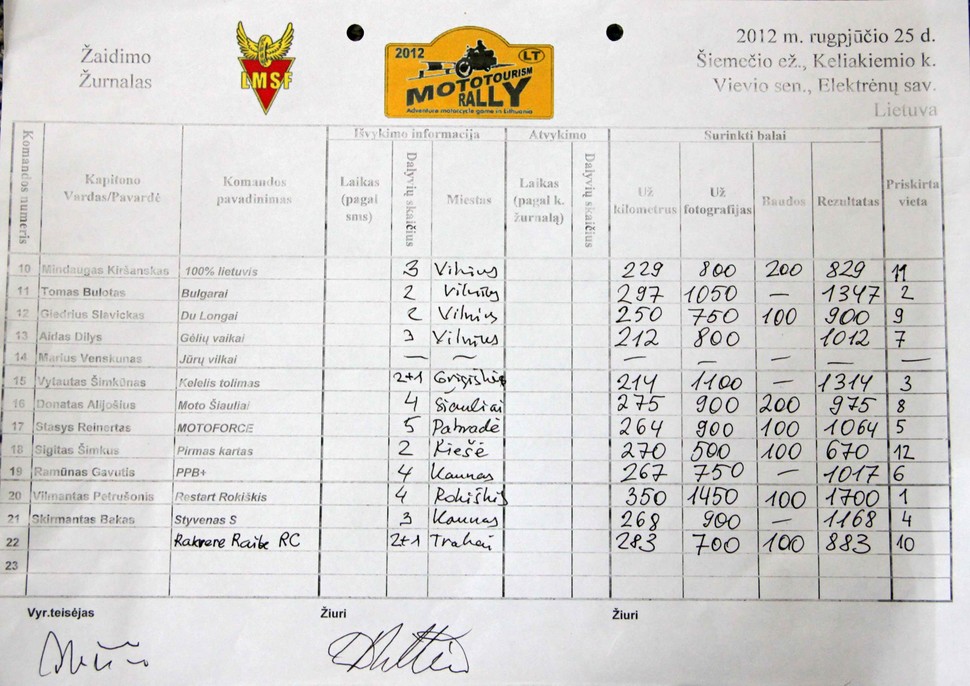 Žaidimo
Žurnalas
LMSF
2012 LT
MOTOTOURISM
RALLY
Adventure motorcycle game in Lithuania
2012 m. rugpjūčio 25 d.
Šiemečio ež., Keliakiemio k.
Vievio sen., Elektrėnų sav.
Lietuva
Komandos numeris Kapitono Vardas/Pavardė Komandos pavadinimas Išvykimo informacija Laikas (pagal sms) Dalyvių skaičius Miestas Atvykimo Laikas (pagal k. žurnalą) Dalyvių skaičius Surinkti balai Už kilometrus Už fotografijas Baudos Rezultatas Priskirta vieta
10 Mindaugas Kiršanskas 100% lietuvis 3 Vilnius 229 800 200 829 11
11 Tomas Bulotas Bulgarai 2 Vilnius 297 1050 — 1347 2
12 Giedrius Slavickas Du Longai 2 Vilnius 250 750 100 900 9
13 Aidas Dilys Gėlių vaikai 3 Vilnius 212 800 1012 7
14 Marius Venskunas Jūrų vilkai — — — — — — —
15 Vytautas Šimkūnas Kelelis tolimas 2+1 Grigiškės 214 1100 — 1314 3
16 Donatas Alijošius Moto Šiauliai 4 Šiauliai 275 900 200 975 8
17 Stasys Reinertas MOTOFORCE 5 Pabradė 264 900 100 1064 5
18 Sigitas Šimkus Pirmas kartas 2 Riešė 270 500 100 670 12
19 Ramūnas Gavutis PPB+ 4 Kaunas 267 750 — 1017 6
20 Vilmantas Petrušonis Restart Rokiškis 4 Rokiškis 350 1450 100 1700 1
21 Skirmantas Bakas Styvenas S 3 Kaunas 268 900 — 1168 4
22 Rakvere Raibe RC 2+1 Trakai 283 700 100 883 10
23
Vyr.teisėjas Žiuri Žiuri